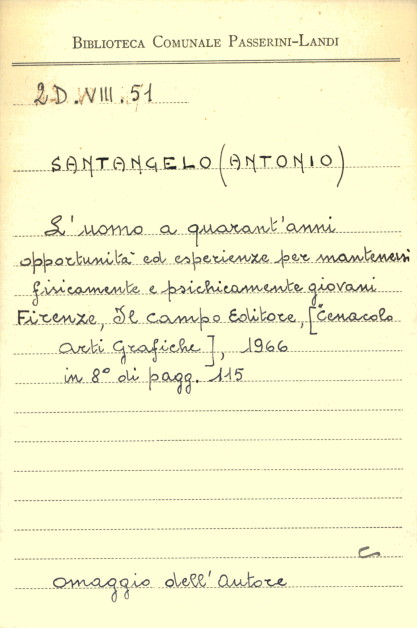 BIBLIOTECA COMUNALE PASSERINI-LANDI
2D.VIII.51
SANTANGELO (ANTONIO)
L'uomo a quarant'anni
opportunità ed esperienze per mantenersi
fisicamente e psichicamente giovani
Firenze, Il Campo Editore, [Cenacolo
Arti Grafiche], 1966
in 8° di pagg. 115
C
omaggio dell'Autore